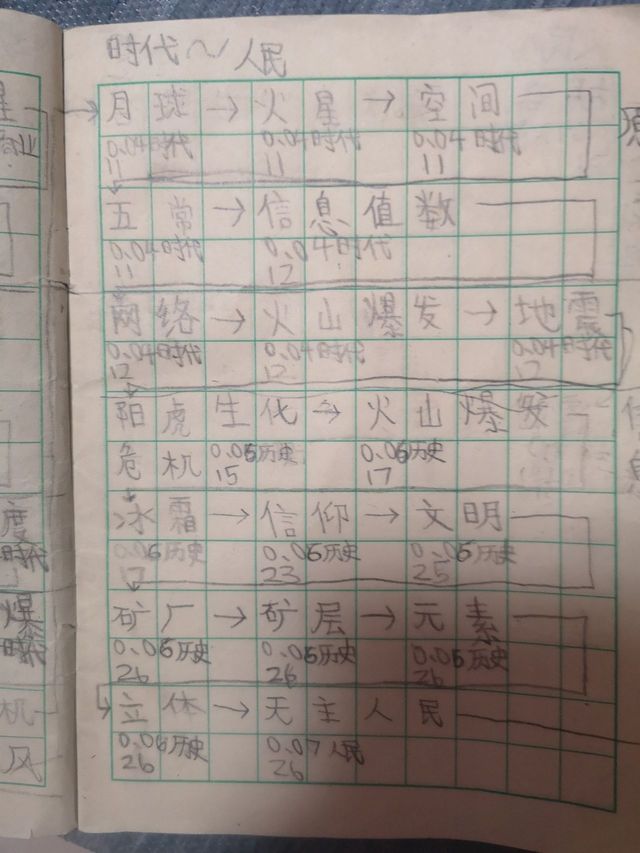 时代～人民
月球→火星→空间
0.04时代 0.04时代 0.04时代
11 11 11
五常→信息值数
0.04时代 0.04时代
11 12
网络→火山爆发→地震
0.04时代 0.04时代 0.04时代
12 12 12
阳虎生化→火山爆发
危机 0.06历史 0.06历史
15 17
冰霜→信仰→文明
0.06历史 0.06历史 0.06历史
17 23 25
矿厂→矿层→元素
0.06历史 0.06历史 0.06历史
26 26 26
立体→天主人民
0.06历史 0.07人民
26 26
星
商业
度
时代
爆
时代
机
风